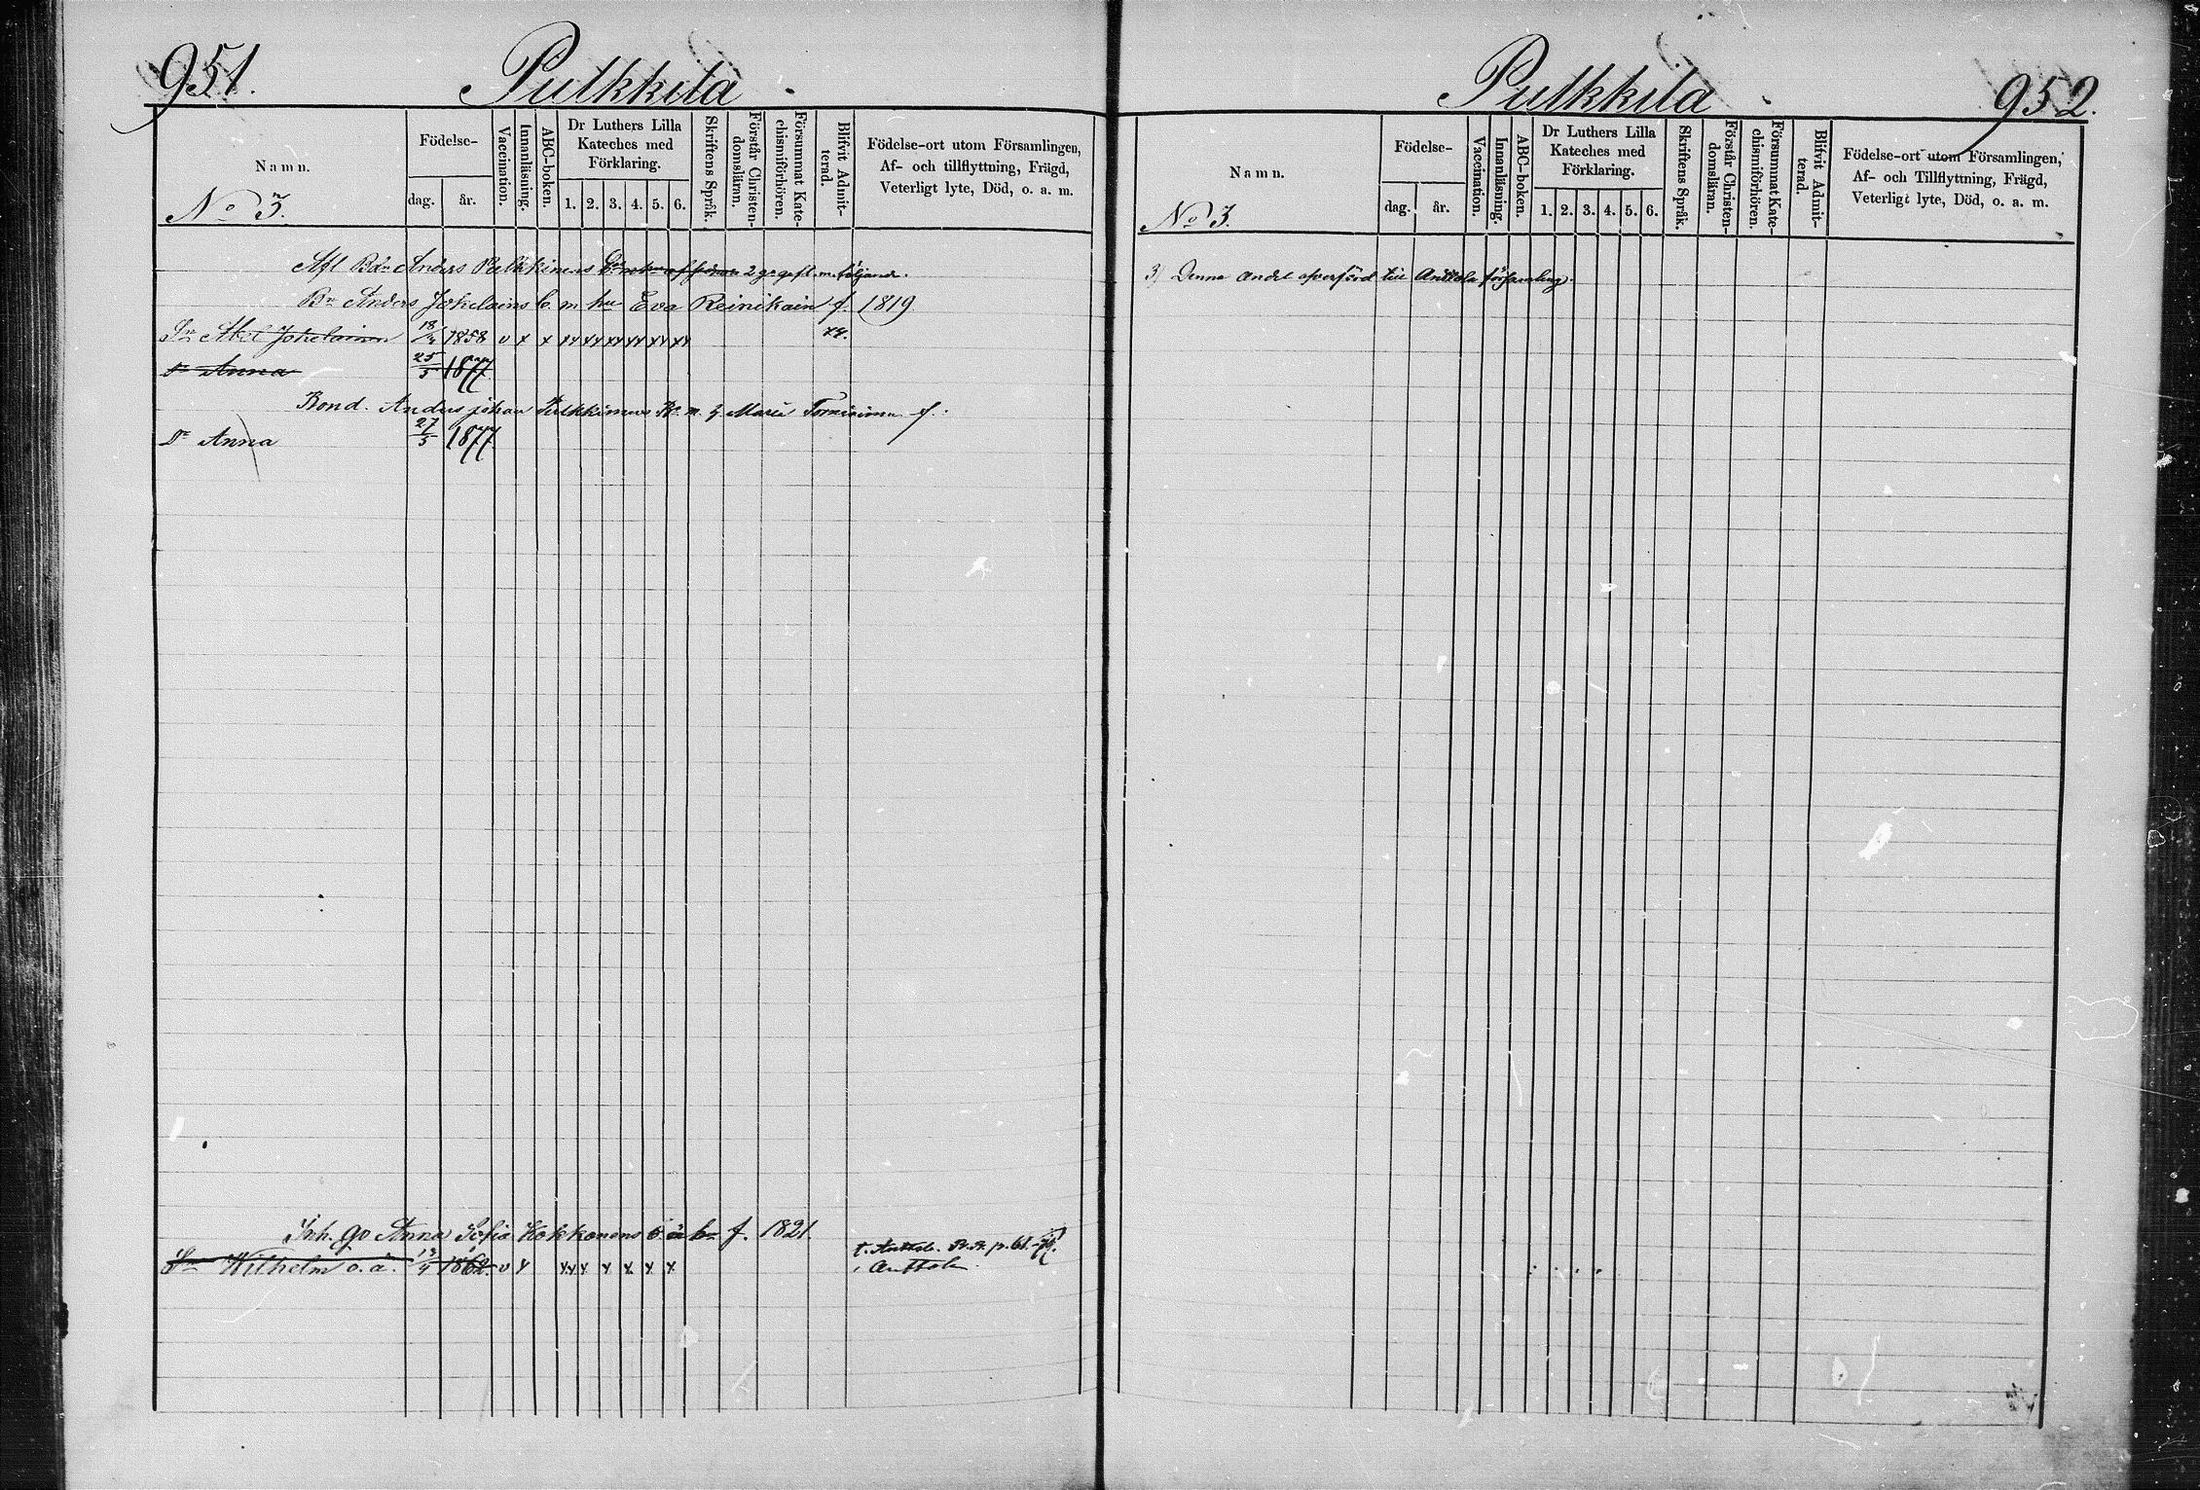 951.
Pulkkila
Namn.
No 3.
Födelse-
dag.
år.
Vaccination.
Innanläsning.
ABC-boken.
Dr Luthers Lilla
Kateches med
Förklaring.
1. 2. 3. 4. 5. 6.
Skriftens Språk.
Förstår Christen-
domslärm.
Försummat Kate-
chismiförhören.
Blifvit Admit-
terad.
Födelse-ort utom Församlingen,
Af- och tillflyttning, Frägd,
Veterligt lyte, Död, o. a. m.
Anders Pulkkinens 2 gr gift m. följande.
Bn Anders Jokelains b. m. hu Eva Reinikain f. 1819.
Sn Abel Jokelainen 18/4 1858 v x x xx xx xx xx xx xx
Dr Anna 25/5 1877
Bond. Anders Johan Pulkkinens m. Maria f.
Dr Anna 27/5 1877
Inh. Anna Sofia Hokkanens f. 1821.
Sn Wilhelm o. ä. 1862. v x xx x x x x x
Anttola
Pulkkila
952.
Namn.
No 3.
Födelse-
dag.
år.
Vaccination.
Innanläsning.
ABC-boken.
Dr Luthers Lilla
Kateches med
Förklaring.
1. 2. 3. 4. 5. 6.
Skriftens Språk.
Förstår Christen-
domsläran.
Försummat Kate-
chismiförhören.
Blifvit Admit-
terad.
Födelse-ort utom Församlingen,
Af- och Tillflyttning, Frägd,
Veterligt lyte, Död, o. a. m.
3) Denna andel öfverförd till Anttola församling.